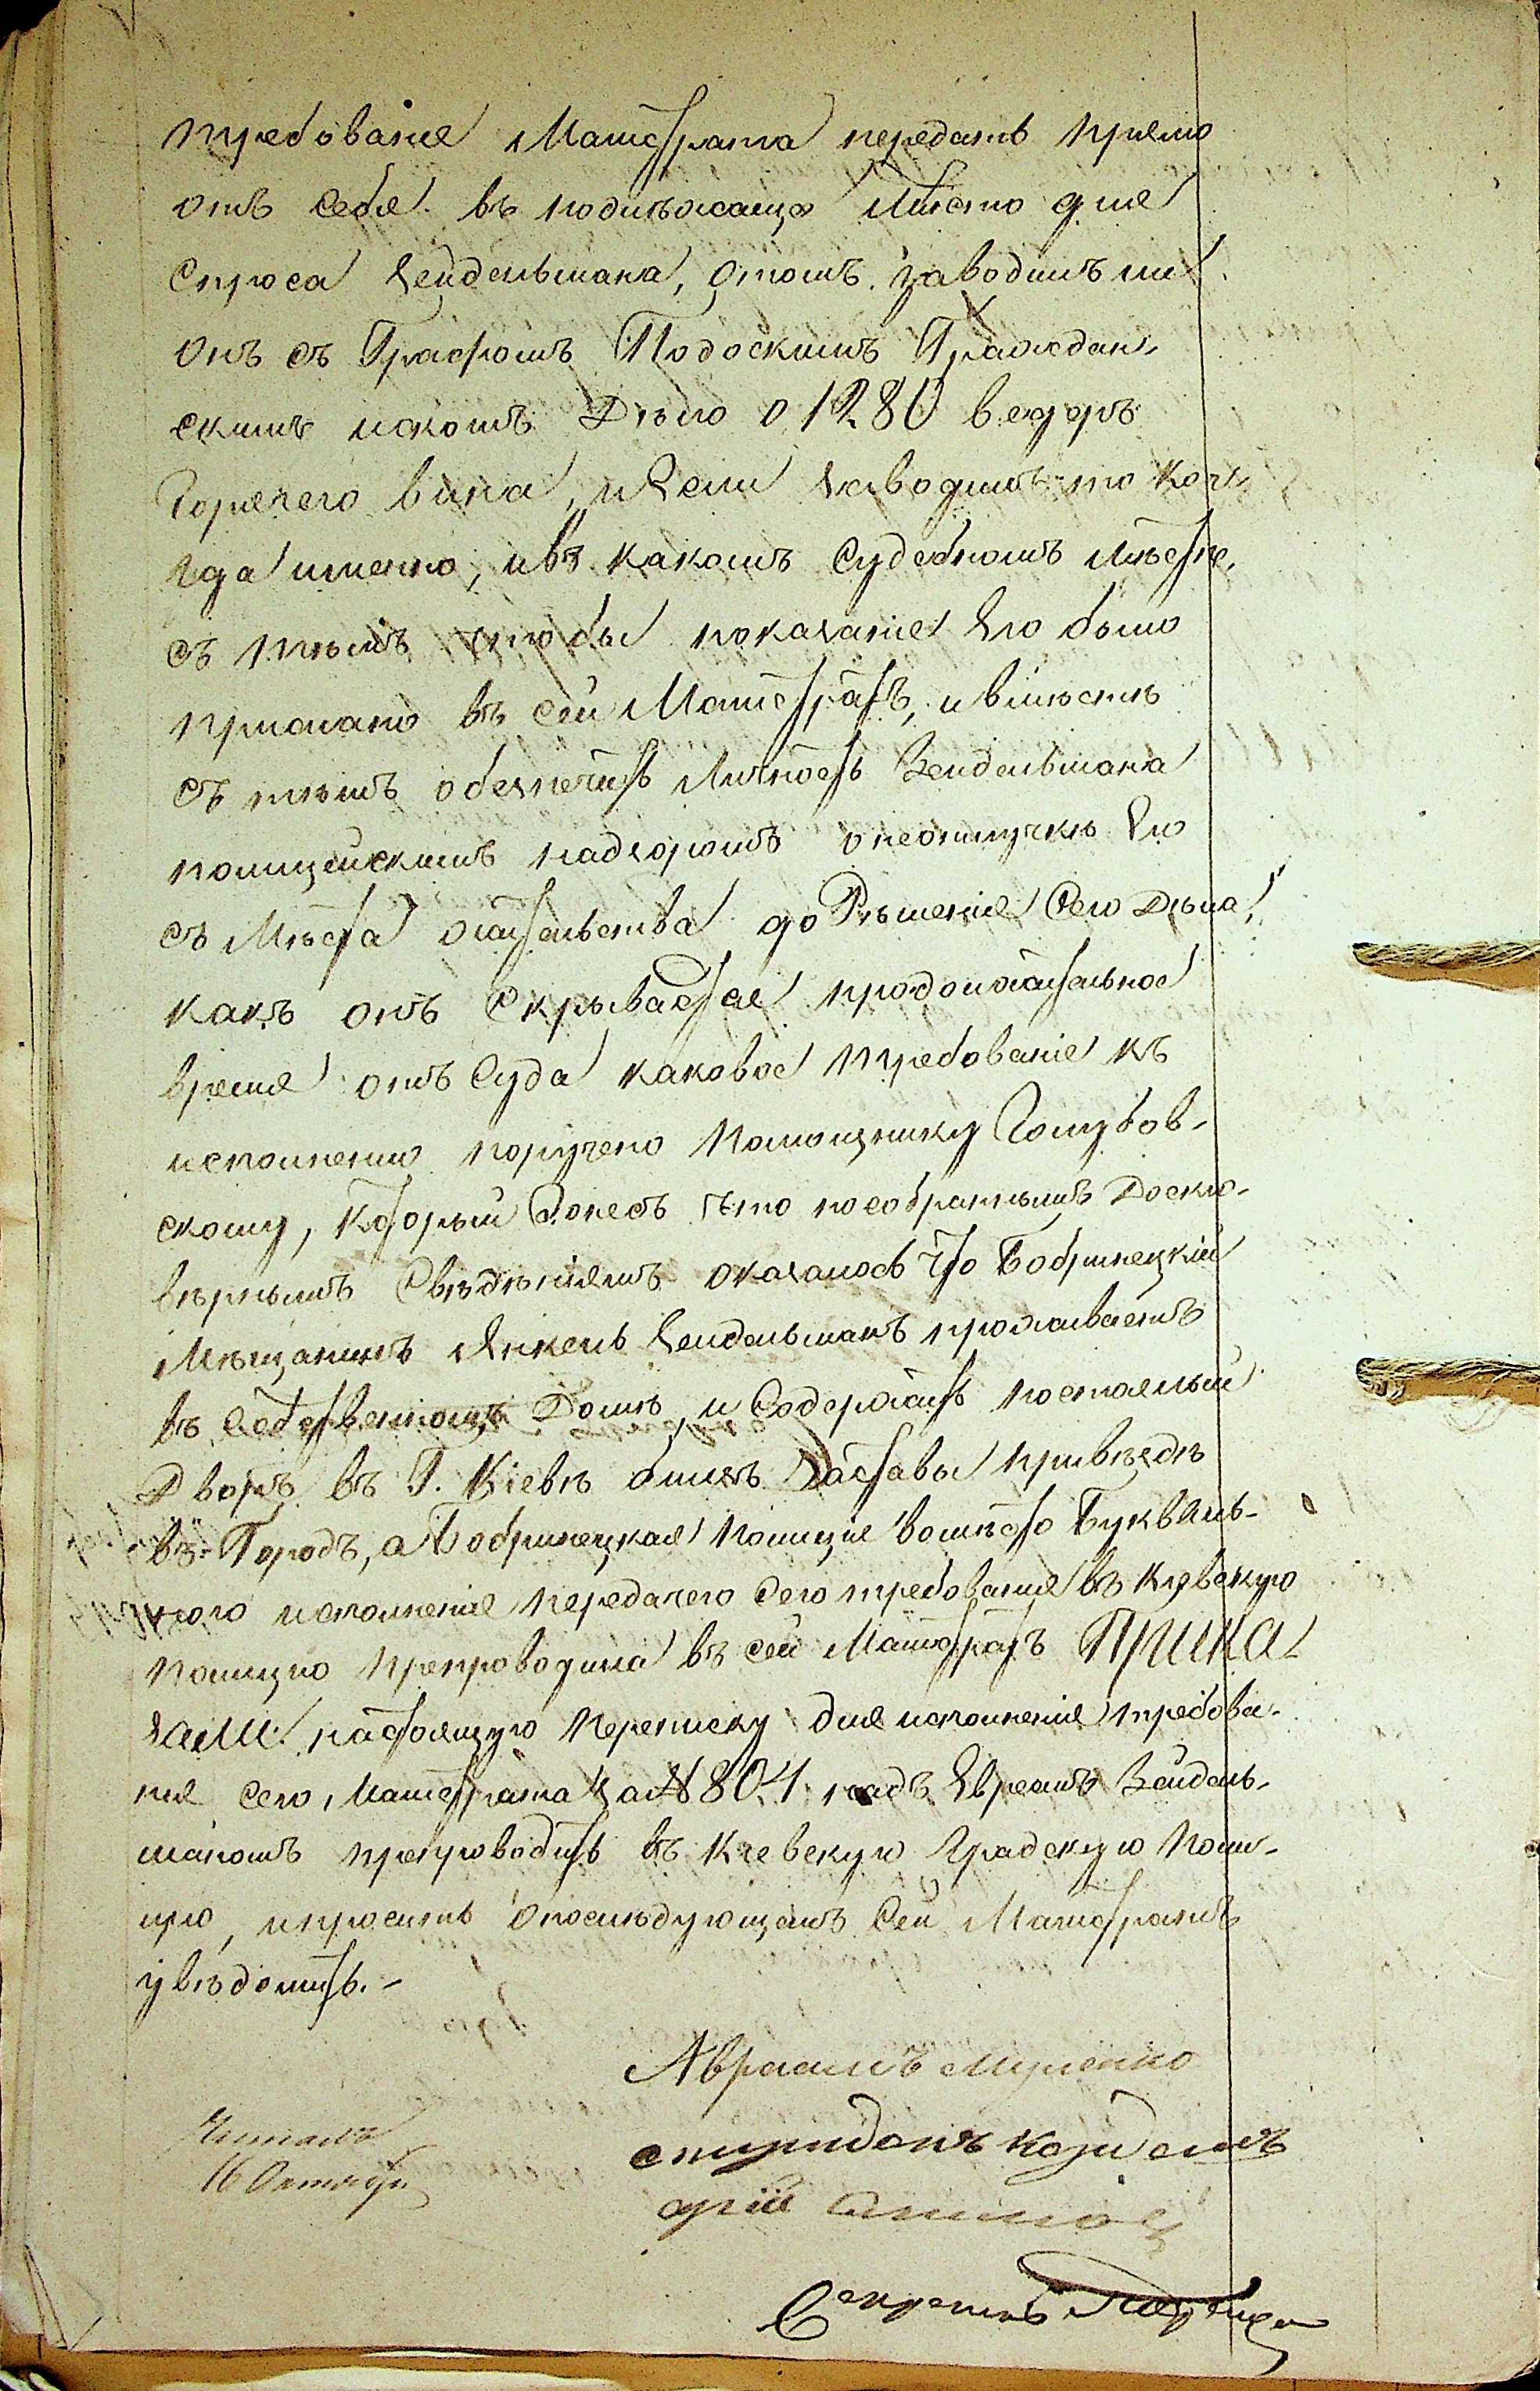 требованіе Магистрата передать прямо
отъ себя въ подлѣжаще Мѣсто для
спроса Зейдельмана, отомъ. заводилъ ли
онъ съ Графомъ Подоскимъ Граждан-
скимъ искомъ Дѣло о 1280 ведеръ
Горячего вина, и Если Заводилъ то Ког-
гда именно, и въ какомъ Судебномъ Мѣсте,
съ тѣмъ чтобы показаніе Его было
прислано въ сей Магистратъ, и вмѣстѣ
съ тѣмъ обезпечить Личность Зейдельмана
полицейскимъ надзоромъ о неотлучкѣ Его
съ Мѣста жительства до Рѣшенія Сего Дѣла,
какъ онъ Скрывается продолжительное
время отъ Суда каковое требованіе къ
исполненію поручено Помощнику Голубов-
скому, который Донесъ что по собраннымъ Доско-
вѣрнымъ Свѣдѣніямъ оказалось что Бобринецкій
Мѣщанинъ Янкель Зейдельманъ проживаетъ
въ собственномъ Домѣ, и Содержитъ постоялый
Дворъ въ Г. Кіевѣ близъ Заставы при въѣздѣ
въ Городъ, а Бобринецкая Полиція вомѣсто Букваль-
ного исполненія передачего сего требованія въ Кіевскую
Полицію препроводила въ сей Магистратъ Прика-
зали: настоящую Переписку для исполненія требова-
нія сего Магистрата за № 804 надъ Евреемъ Зейдель-
маномъ препроводить въ Кіевскую Градскую Поли-
цію, и просить о послѣдующемъ Сей Магистратъ
увѣдомить.-
Авраамъ
спиридонъ
Читалъ
16 Октября
Секретарь